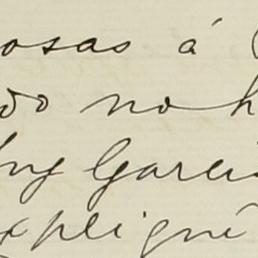 osas á
do no h
ny Garci
xpliqué